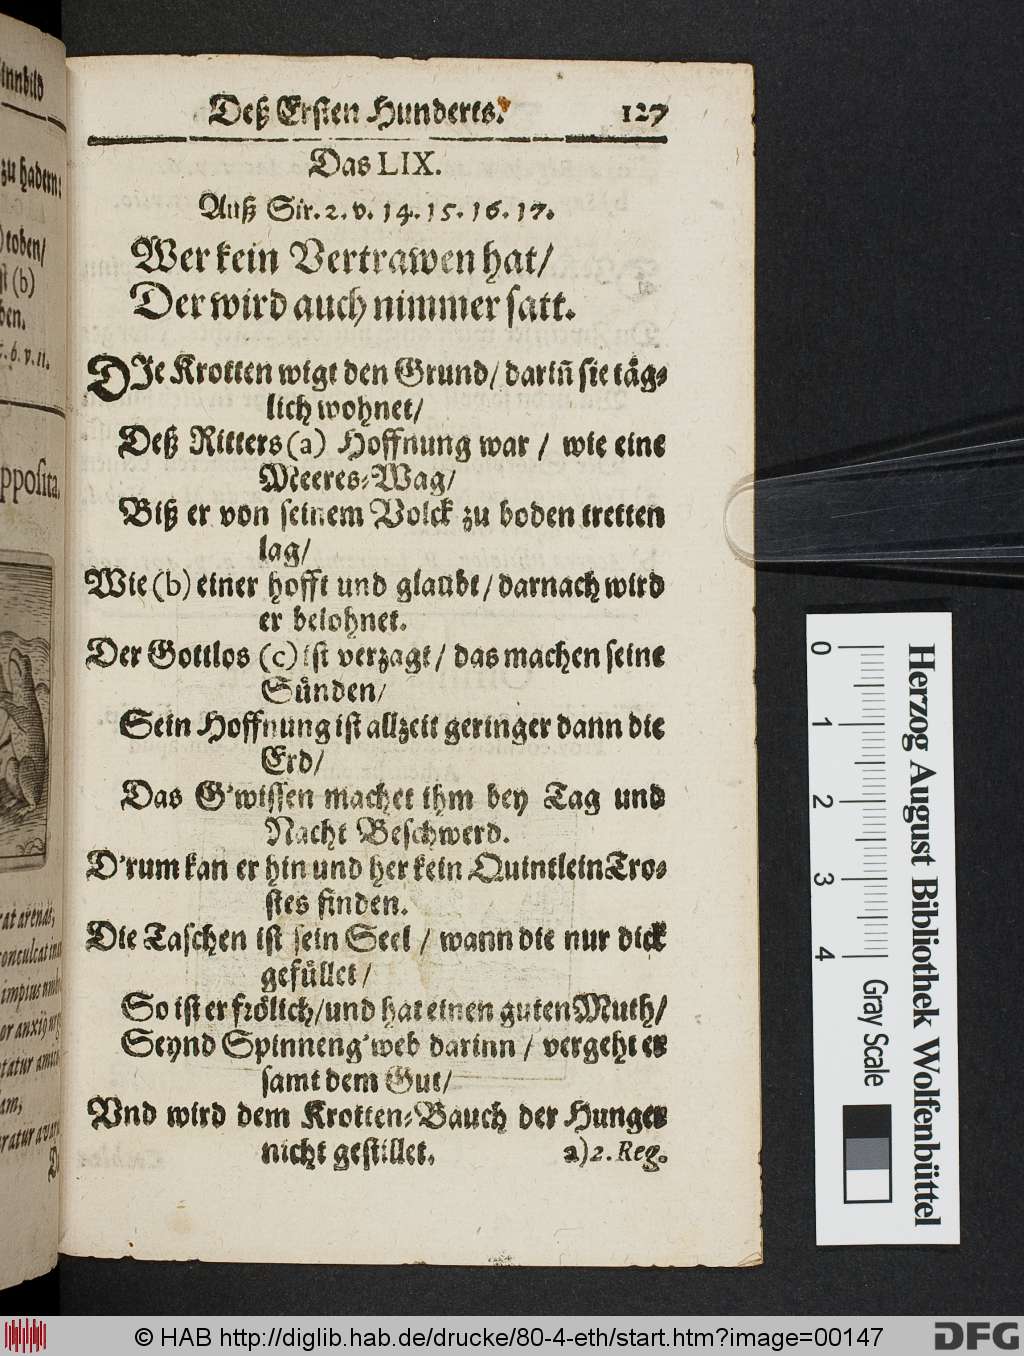 innbild
zu hadern:
) toben/
st (b)
ben.
c. 6. v. 11.
pposita.
rat arenae,
conculcat
impius
or anxi9
tatur
am,
D
Deß Ersten Hunderts. 127
Das LIX.
Auß Sir. 2. v. 14. 15. 16. 17.
Wer kein Vertrawen hat/
Der wird auch nimmer satt.
DIe Krotten wigt den Grund/ dariñ sie täg-
lich wohnet/
Deß Ritters (a) Hoffnung war / wie eine
Meeres-Wag/
Biß er von seinem Volck zu boden tretten
lag/
Wie (b) einer hofft und glaubt/ darnach wird
er belohnet.
Der Gottlos (c) ist verzagt/ das machen seine
Sünden/
Sein Hoffnung ist allzeit geringer dann die
Erd/
Das G'wissen machet ihm bey Tag und
Nacht Beschwerd.
D'rum kan er hin und her kein Quintlein Tro-
stes finden.
Die Taschen ist sein Seel / wann die nur dick
gefüllet/
So ist er frölich/ und hat einen guten Muth/
Seynd Spinneng'web darinn / vergeht er
samt dem Gut/
Vnd wird dem Krotten-Bauch der Hunger
nicht gestillet. a) 2. Reg.
0 1 2 3 4
Herzog August Bibliothek Wolfenbüttel
Gray Scale
© HAB http://diglib.hab.de/drucke/80-4-eth/start.htm?image=00147
DFG